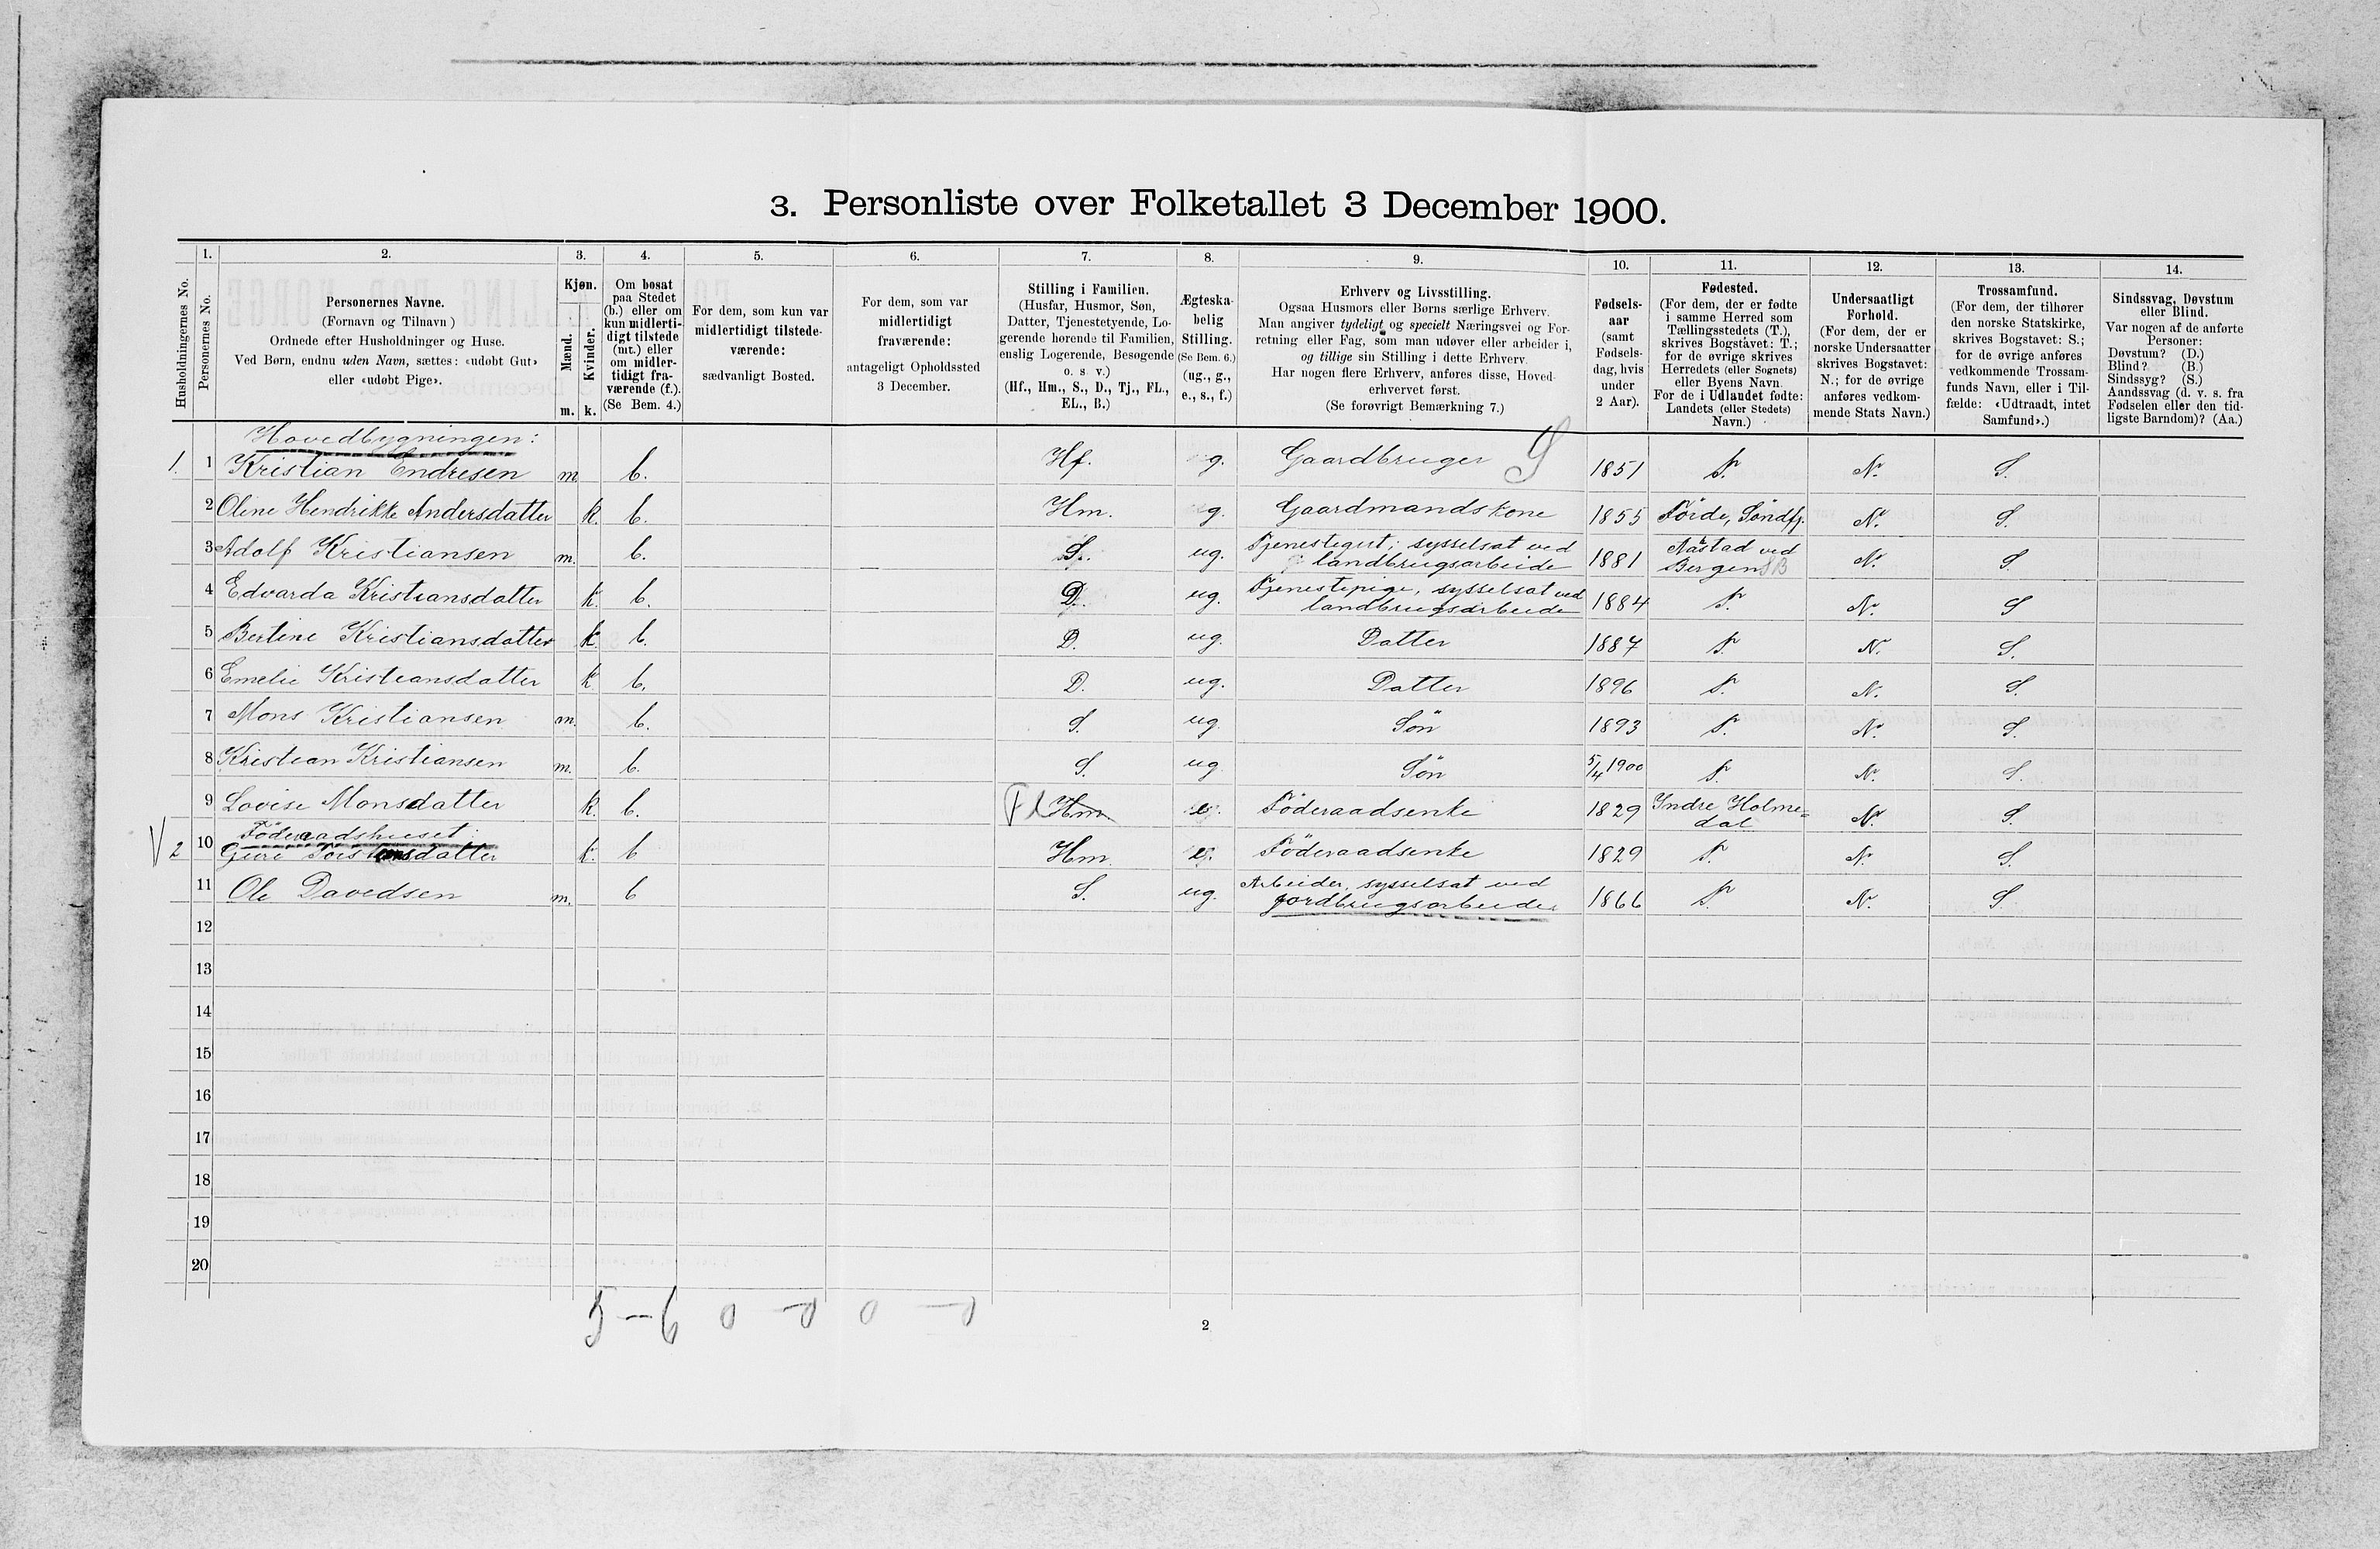 3. Personliste over Folketallet 3 December 1900.
1. 2. 3. 4. 5. 6. 7. 8. 9. 10. 11. 12. 13. 14.
Husholdningernes No.
Personernes No.
Personernes Navne.
(Fornavn og Tilnavn)
Ordnede efter Husholdninger og Huse.
Ved Børn, endnu uden Navn, sættes: «udøbt Gut»
eller «udøbt Pige».
Kjøn.
Mænd.
Kvinder.
m. k.
Om bosat
paa Stedet
(b.) eller om
kun midlerti-
digt tilstede
(mt.) eller
om midler-
tidigt fra-
værende (f.).
(Se Bem. 4.)
For dem, som kun var
midlertidigt tilstede-
værende:
sædvanligt Bosted.
For dem, som var
midlertidigt
fraværende:
antageligt Opholdssted
3 December.
Stilling i Familien.
(Husfar, Husmor, Søn,
Datter, Tjenestetyende, Lo-
gerende hørende til Familien,
enslig Logerende, Besøgende
o. s. v.)
(Hf., Hm., S., D., Tj., FL.,
EL., B.)
Ægteska-
belig
Stilling.
(Se Bem. 6.)
(ug., g.,
e., s., f.)
Erhverv og Livsstilling.
Ogsaa Husmors eller Børns særlige Erhverv.
Man angiver tydeligt og specielt Næringsvei og For-
retning eller Fag, som man udøver eller arbeider i,
og tillige sin Stilling i dette Erhverv.
Har nogen flere Erhverv, anføres disse, Hoved-
erhvervet først.
(Se forøvrigt Bemærkning 7.)
Fødsels-
aar
(samt
Fødsels-
dag, hvis
under
2 Aar).
Fødested.
(For dem, der er fødte
i samme Herred som
Tællingsstedets (T.),
skrives Bogstavet: T.;
for de øvrige skrives
Herredets (eller Sognets)
eller Byens Navn.
For de i Udlandet fødte:
Landets (eller Stedets)
Navn.)
Undersaatligt
Forhold.
(For dem, der er
norske Undersaatter
skrives Bogstavet:
N.; for de øvrige
anføres vedkom-
mende Stats Navn.)
Trossamfund.
(For dem, der tilhører
den norske Statskirke,
skrives Bogstavet: S.;
for de øvrige anføres
vedkommende Trossam-
funds Navn, eller i Til-
fælde: «Udtraadt, intet
Samfund».)
Sindssvag, Døvstum
eller Blind.
Var nogen af de anførte
Personer:
Døvstum? (D.)
Blind? (B.)
Sindssyg? (S.)
Aandssvag (d. v. s. fra
Fødselen eller den tid-
ligste Barndom)? (Aa.)
Hovedbygningen:
1. 1 Kristian Endresen m. b. Hf. g. Gaardbruger G 1851 T. N. S.
2 Oline Hendrikke Andersdatter k. b. Hm. g. Gaardmandskone 1855 Förde, Söndfj. N. S.
3 Adolf Kristiansen m. b. S. ug. Tjenestegut; sysselsat ved
landbrugsarbeide 1881 ved
Bergen SB N. S.
4 Edvarda Kristiansdatter k. b. D. ug. Tjenestepige, sysselsat ved
landbrugsarbeide 1884 T. N. S
5 Bertine Kristiansdatter k. b. D. ug. Datter 1887 T. N. S.
6 Emelie Kristiansdatter k. b. D. ug. Datter 1896 T. N. S.
7 Mons Kristiansen m. b. S. ug. Sön 1893 T. N. S.
8 Kristian Kristiansen m. b. S. ug. Sön 5/4 1900 T. N. S.
9 Lovise Monsdatter k. b. Fl Hm. e. Föderaadsenke 1829 Yndre Holme=
dal N. S.
Föderaadshuset:
V 2 10 Guri datter k. b Hm. e. Föderaadsenke 1829 T. N. S.
11 Ole Davedsen m. b S. ug. Arbeider, sysselsat ved
jordbrugsarbeide. 1866 T. N. S.
12
13
14
15
16
17
18
19
20
5 – 6 0 0 0
2